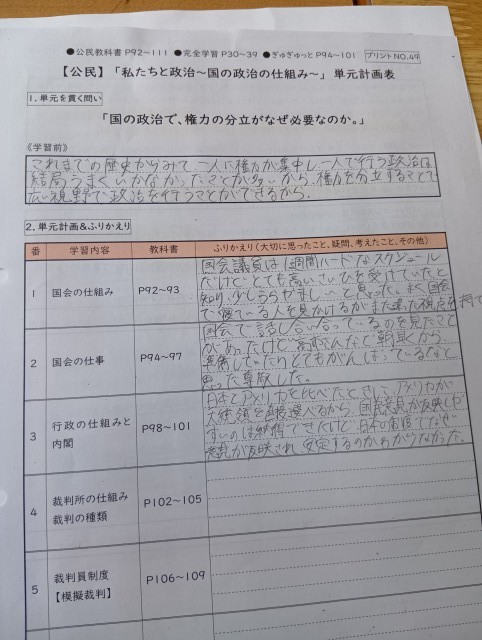 ●公民教科書 P92～111 ●完全学習 P30～39 ●ぎゅぎゅっと P94～101 プリントNO.49
【公民】「私たちと政治～国の政治の仕組み～」単元計画表
1.単元を貫く問い
「国の政治で、権力の分立がなぜ必要なのか。」
《学習前》
これまでの歴史からみて、一人に権力が集中し、一人で行う政治は
結局うまくいかなかったことが多いから、権力を分立することで
広い視野で政治を行うことができるから。
2.単元計画&ふりかえり
番 学習内容 教科書 ふりかえり(大切に思ったこと、疑問、考えたこと、その他)
1 国会の仕組み P92～93
国会議員は1週間ハードなスケジュール
だけど、とても高い を受けていたと
知り、少しうらやましいと思った。 国会
で寝ている人を見かけるがまた違った視点を持て
2 国会の仕事 P94～97
国会で話し合い合っているのを見たこと
があったけど、 など朝早くから
準備していたりとてもがんばっているなと
思った。尊敬した。
3 行政の仕組みと内閣 P98～101
日本とアメリカを比べたときに、アメリカが
大統領を直接選べるから、国民意見が反映しや
すいのは納得できたけど、日本の制度でなぜ
意見が反映され、安定するのかわからなかった。
4 裁判所の仕組み 裁判の種類 P102～105
5 裁判員制度【模擬裁判】 P106～109